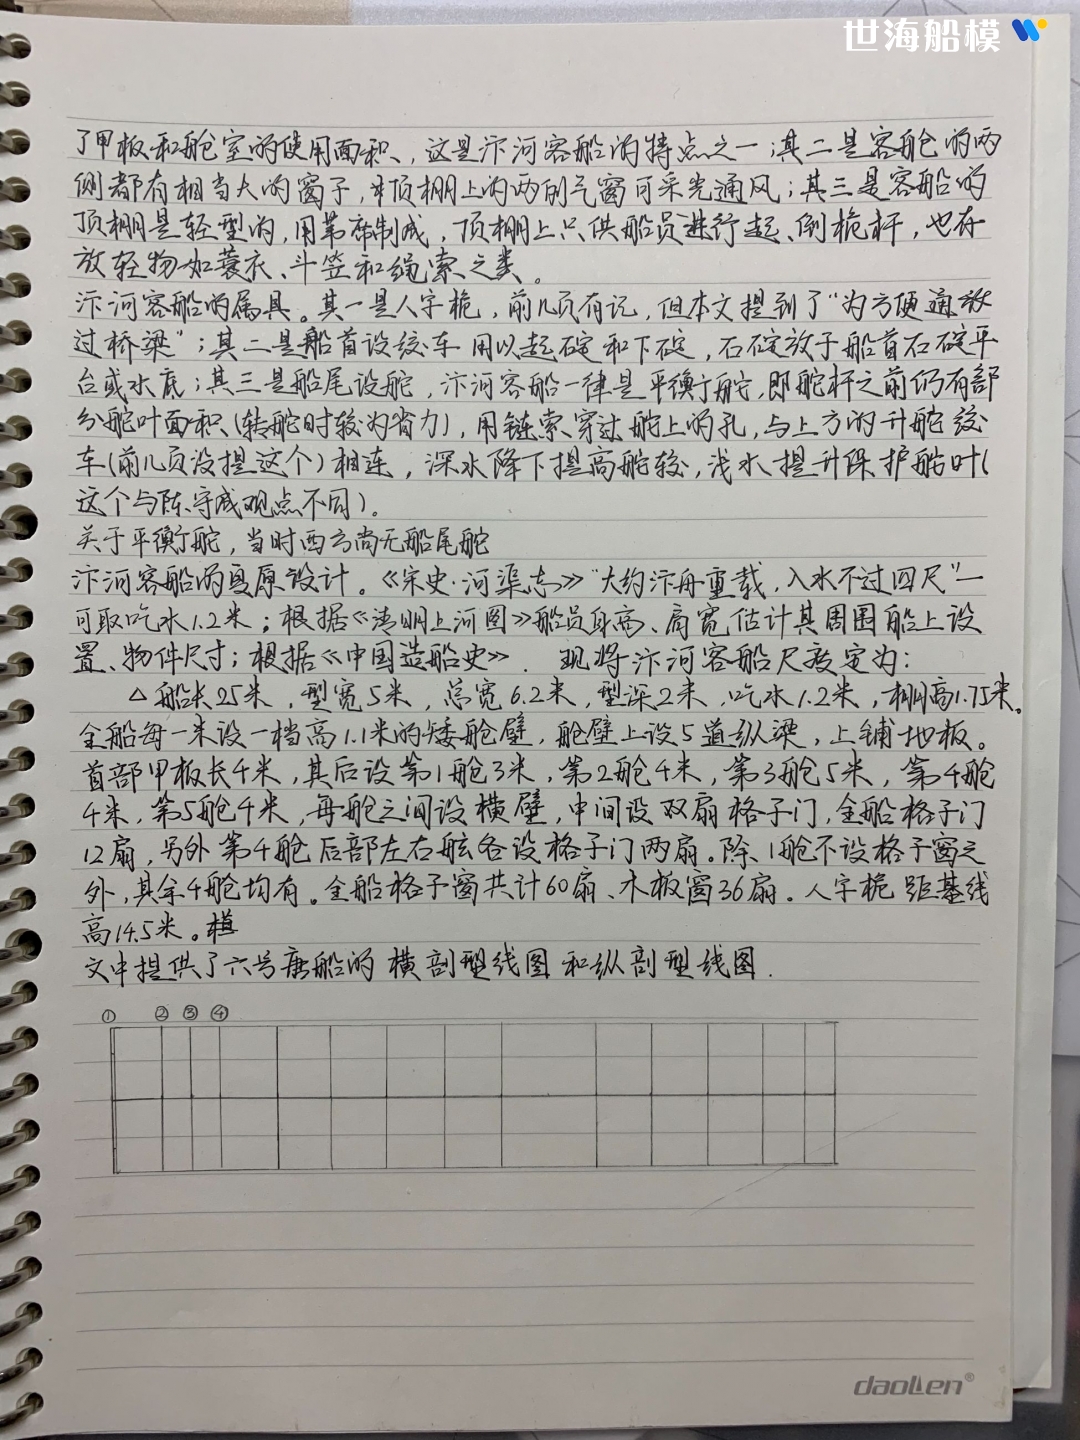 世海船模
了甲板和舱室的使用面积，这是汴河客船的特点之一；其二是客舱的两
侧都有相当大的窗子，顶棚上的两侧气窗可采光通风；其三是客船的
顶棚是轻型的，用苇席制成，顶棚上只供船员进行起、倒桅杆，也存
放轻物如蓑衣、斗笠和绳索之类。
汴河客船的属具。其一是人字桅，前几页有记，但本文提到了“为方便通放
过桥梁”；其二是船首设绞车用以起碇和下碇，石碇放于船首石碇平
台或水底；其三是船尾设舵，汴河客船一律是平衡舵，即舵杆之前仍有部
分舵叶面积（转舵时较为省力），用链索穿过舵上的孔，与上方的升舵绞
车（前几页没提这个）相连，深水降下提高船较，浅水提升保护船叶（
这个与陈守成观点不同）。
关于平衡舵，当时西方尚无船尾舵
汴河客船的复原设计。《宋史·河渠志》“大约汴舟重载，入水不过四尺”一
可取吃水1.2米；根据《清明上河图》船员身高、肩宽估计其周围船上设
置、物件尺寸；根据《中国造船史》．现将汴河客船尺度定为：
△船长25米，型宽5米，总宽6.2米，型深2米，吃水1.2米，棚高1.75米。
全船每一米设一档高1.1米的矮舱壁，舱壁上设5道纵梁，上铺地板。
首部甲板长4米，其后设第1舱3米，第2舱4米，第3舱5米，第4舱
4米，第5舱4米，每舱之间设横壁，中间设双扇格子门，全船格子门
12扇，另外第4舱后部左右舷各设格子门两扇。除1舱不设格子窗之
外，其余4舱均有。全船格子窗共计60扇、木板窗36扇。人字桅距基线
高14.5米。
文中提供了六号唐船的横剖型线图和纵剖型线图．
① ② ③ ④
daolen®